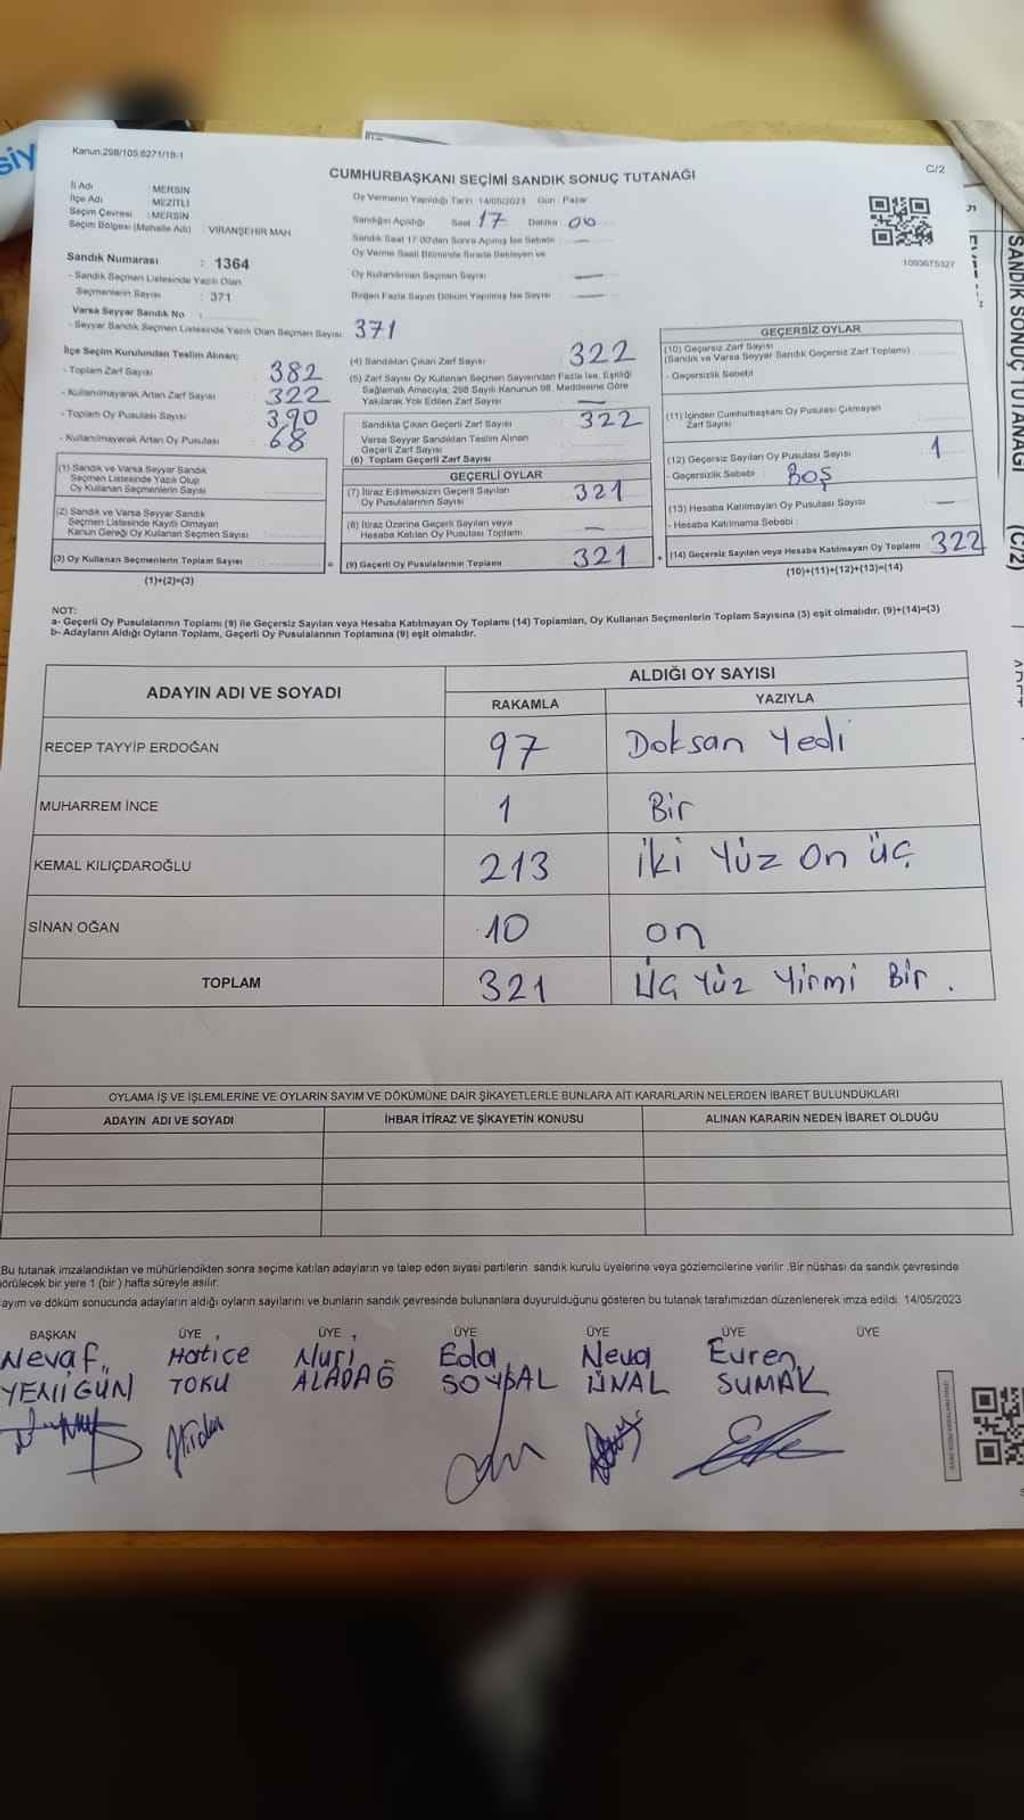 siy
Kanun:298/105.6271/18-1
C/2
CUMHURBAŞKANI SEÇİMİ SANDIK SONUÇ TUTANAĞI
İl Adı : MERSİN
İlçe Adı : MEZİTLİ
Seçim Çevresi : MERSİN
Seçim Bölgesi (Mahalle Adı) : VİRANŞEHİR MAH
Oy Vermenin Yapıldığı Tarih 14/05/2023 Gün : Pazar
Sandığın Açıldığı Saat 17 Dakika 00
Sandık Saat 17.00'dan Sonra Açılmış İse Sebebi —
Oy Verme Saati Bitiminde Sırada Bekleyen ve
Oy Kullandırılan Seçmen Sayısı —
Birden Fazla Sayım Döküm Yapılmış İse Sayısı —
Sandık Numarası : 1364
- Sandık Seçmen Listesinde Yazılı Olan
Seçmenlerin Sayısı : 371
Varsa Seyyar Sandık No :
- Seyyar Sandık Seçmen Listesinde Yazılı Olan Seçmen Sayısı 371
İlçe Seçim Kurulundan Teslim Alınan:
- Toplam Zarf Sayısı 382
- Kullanılmayarak Artan Zarf Sayısı 322
- Toplam Oy Pusulası Sayısı 390
- Kullanılmayarak Artan Oy Pusulası 68
(1) Sandık ve Varsa Seyyar Sandık
Seçmen Listesinde Yazılı Olup
Oy Kullanan Seçmenlerin Sayısı
(2) Sandık ve Varsa Seyyar Sandık
Seçmen Listesinde Kayıtlı Olmayan
Kanun Gereği Oy Kullanan Seçmen Sayısı
(3) Oy Kullanan Seçmenlerin Toplam Sayısı
(1)+(2)=(3)
(4) Sandıktan Çıkan Zarf Sayısı 322
(5) Zarf Sayısı Oy Kullanan Seçmen Sayısından Fazla İse, Eşitliği
Sağlamak Amacıyla, 298 Sayılı Kanunun 98. Maddesine Göre
Yakılarak Yok Edilen Zarf Sayısı —
Sandıkta Çıkan Geçerli Zarf Sayısı 322
Varsa Seyyar Sandıktan Teslim Alınan
Geçerli Zarf Sayısı
(6) Toplam Geçerli Zarf Sayısı
GEÇERLİ OYLAR
(7) İtiraz Edilmeksizin Geçerli Sayılan
Oy Pusulalarının Sayısı 321
(8) İtiraz Üzerine Geçerli Sayılan veya
Hesaba Katılan Oy Pusulası Toplamı —
= (9) Geçerli Oy Pusulalarının Toplamı 321
GEÇERSİZ OYLAR
(10) Geçersiz Zarf Sayısı
(Sandık ve Varsa Seyyar Sandık Geçersiz Zarf Toplamı)
- Geçersizlik Sebebi
(11) İçinden Cumhurbaşkanı Oy Pusulası Çıkmayan
Zarf Sayısı
(12) Geçersiz Sayılan Oy Pusulası Sayısı 1
- Geçersizlik Sebebi : BOŞ
(13) Hesaba Katılmayan Oy Pusulası Sayısı —
- Hesaba Katılmama Sebebi :
+ (14) Geçersiz Sayılan veya Hesaba Katılmayan Oy Toplamı 322
(10)+(11)+(12)+(13)=(14)
NOT:
a- Geçerli Oy Pusulalarının Toplamı (9) ile Geçersiz Sayılan veya Hesaba Katılmayan Oy Toplamı (14) Toplamları, Oy Kullanan Seçmenlerin Toplam Sayısına (3) eşit olmalıdır. (9)+(14)=(3)
b- Adayların Aldığı Oyların Toplamı, Geçerli Oy Pusulalarının Toplamına (9) eşit olmalıdır.
ADAYIN ADI VE SOYADI
ALDIĞI OY SAYISI
RAKAMLA YAZIYLA
RECEP TAYYİP ERDOĞAN 97 Doksan Yedi
MUHARREM İNCE 1 Bir
KEMAL KILIÇDAROĞLU 213 iki Yüz On üç
SİNAN OĞAN 10 on
TOPLAM 321 Üç Yüz Yirmi Bir .
OYLAMA İŞ VE İŞLEMLERİNE VE OYLARIN SAYIM VE DÖKÜMÜNE DAİR ŞİKAYETLERLE BUNLARA AİT KARARLARIN NELERDEN İBARET BULUNDUKLARI
ADAYIN ADI VE SOYADI İHBAR İTİRAZ VE ŞİKAYETİN KONUSU ALINAN KARARIN NEDEN İBARET OLDUĞU
Bu tutanak imzalandıktan ve mühürlendikten sonra seçime katılan adayların ve talep eden siyasi partilerin sandık kurulu üyelerine veya gözlemcilerine verilir .Bir nüshası da sandık çevresinde
görülecek bir yere 1 (bir ) hafta süreyle asılır.
ayım ve döküm sonucunda adayların aldığı oyların sayılarını ve bunların sandık çevresinde bulunanlara duyurulduğunu gösteren bu tutanak tarafımızdan düzenlenerek imza edildi. 14/05/2023
BAŞKAN ÜYE ÜYE ÜYE ÜYE ÜYE ÜYE
Nevaf Hatice Nuri Eda Neva Evren
YENİGÜN TOKU ALADAĞ SOYSAL ÜNAL SUMAK
SANDIK SONUÇ TUTANAĞI (C/2)